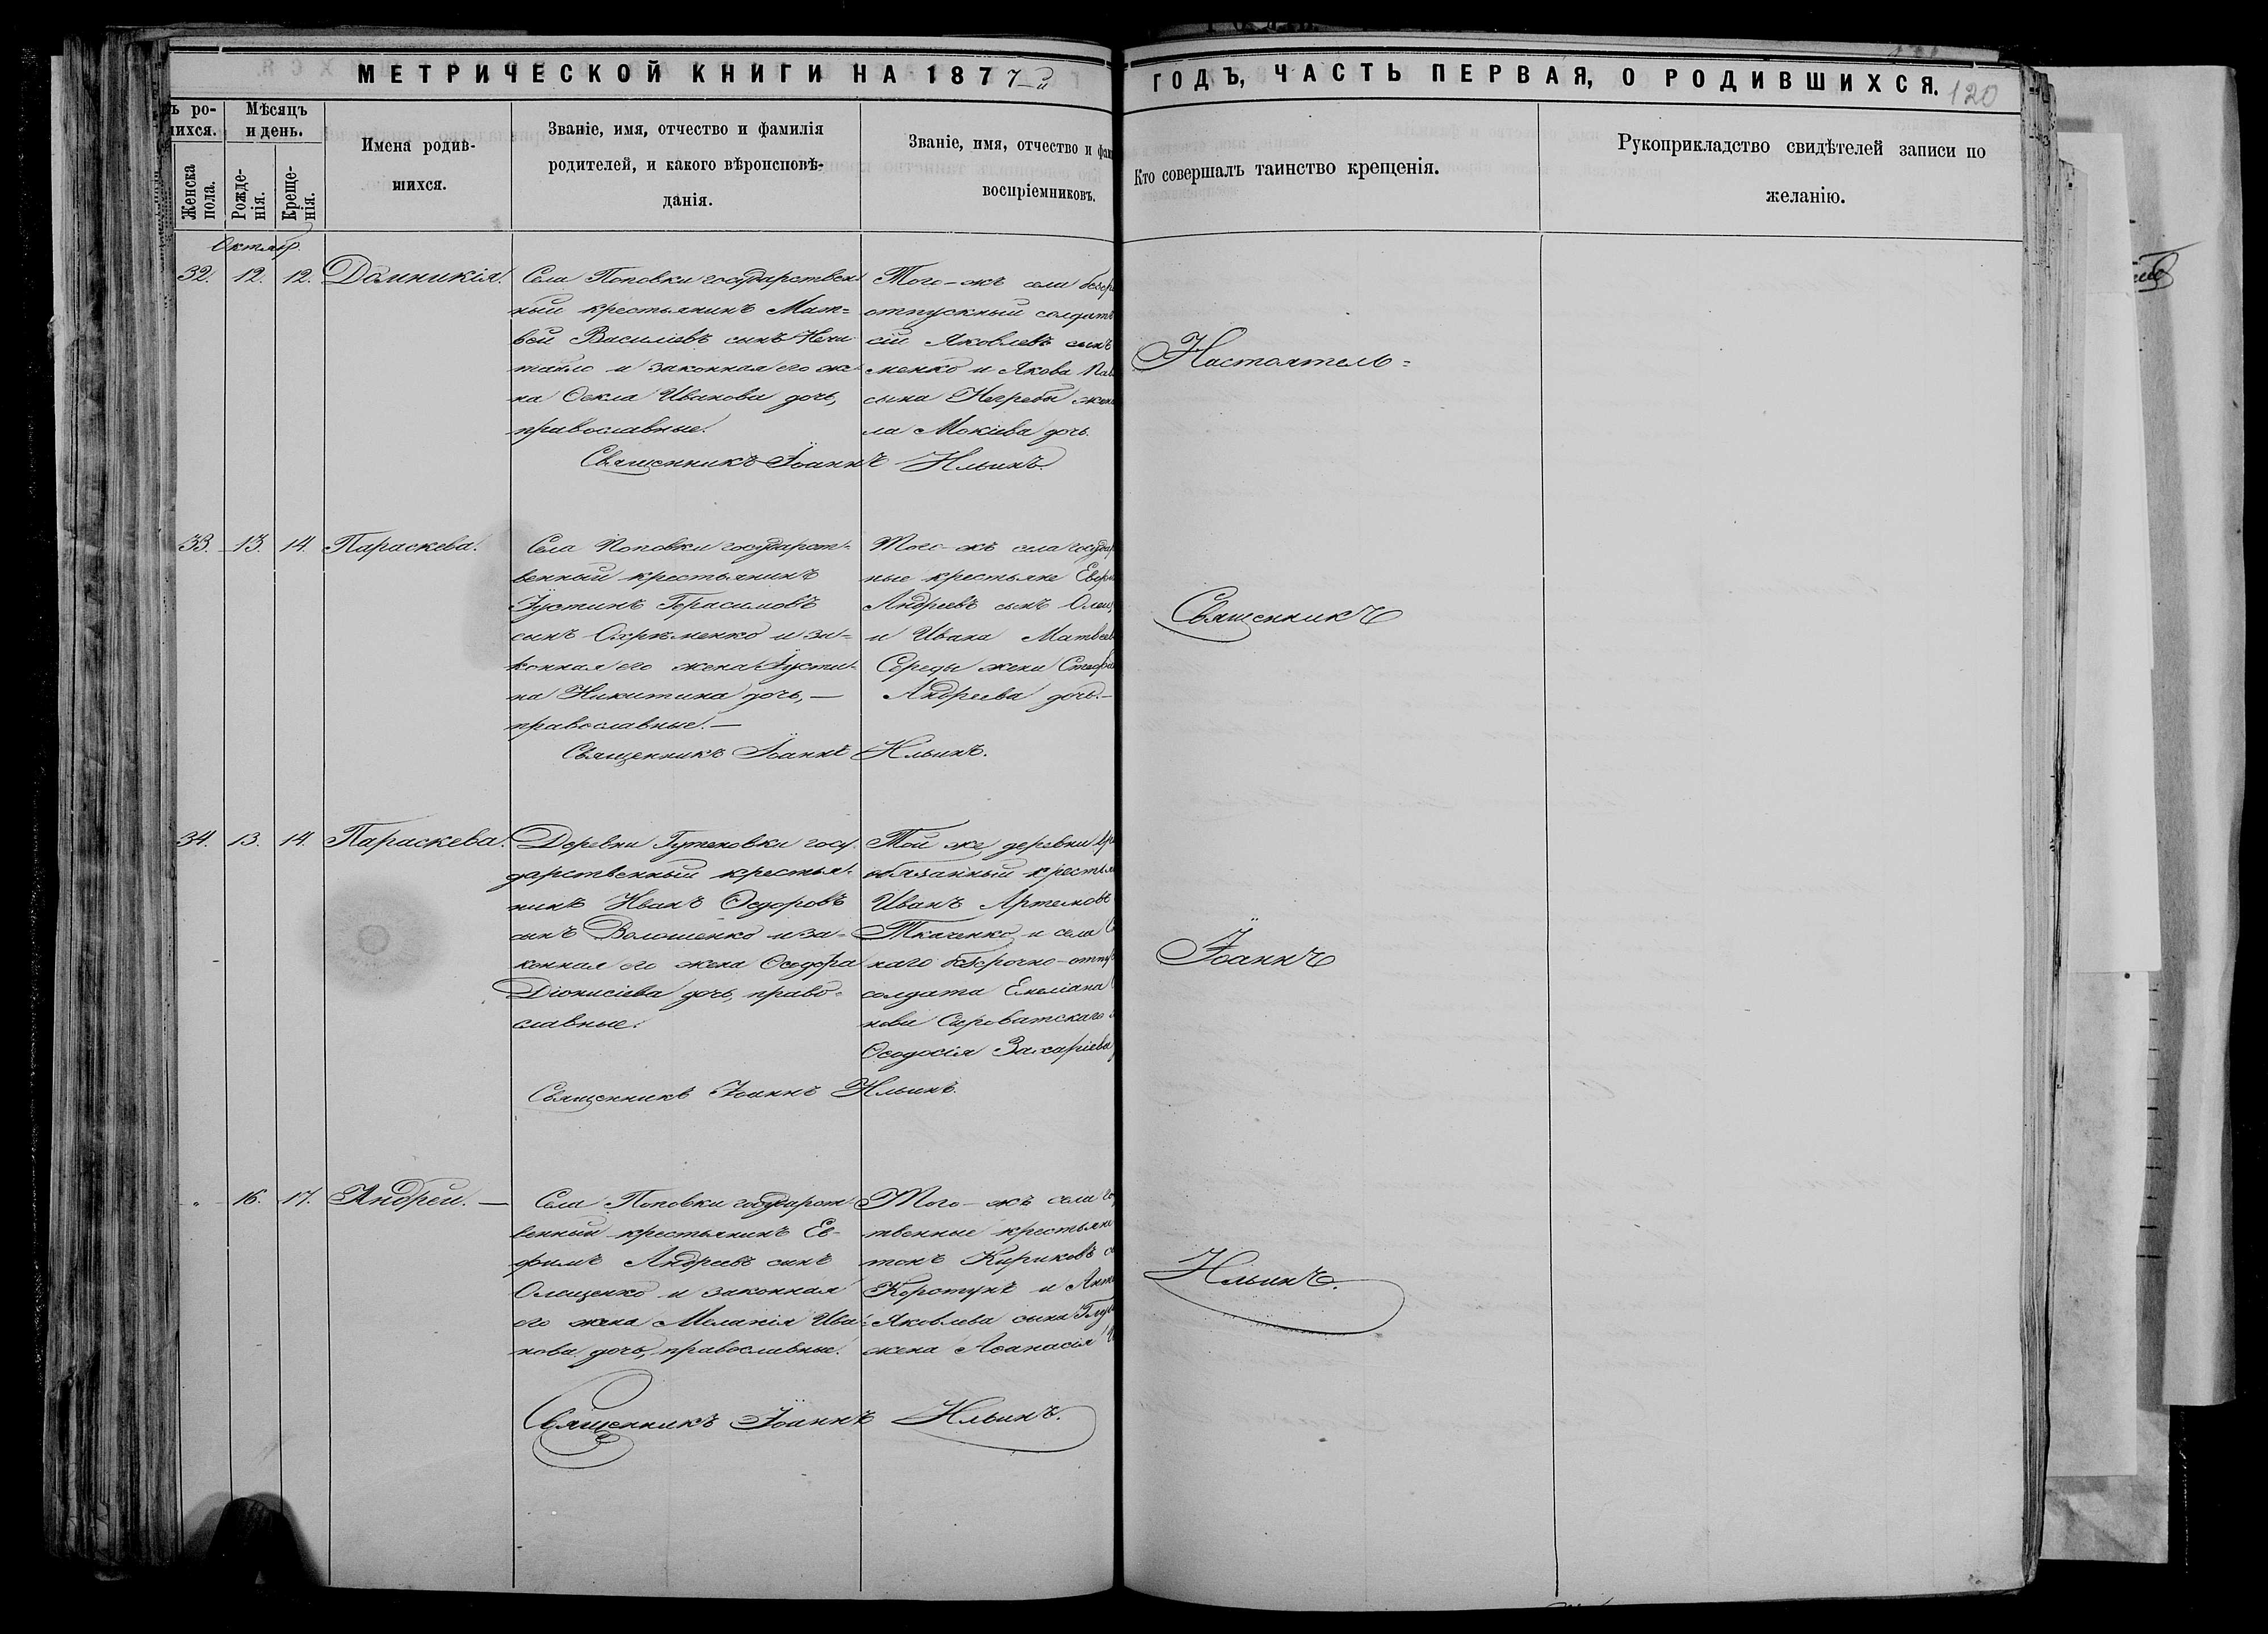 МЕТРИЧЕСКОЙ КНИГИ НА 1877й
ГОДЪ, ЧАСТЬ ПЕРВАЯ, О РОДИВШИХСЯ.
120
ъ ро-
шихся.
Женска
пола.
Мѣсяцъ
и день.
Рожде-
нія.
Креще-
нія.
Имена родив-
шихся.
Званіе, имя, отчество и фамилія
родителей, и какого вѣроисповѣ-
данія.
Званіе, имя, отчество и фам
воспріемниковъ.
Кто совершалъ таинство крещенія.
Рукоприкладство свидѣтелей записи по
желанію.
Октяб.
32. 12. 12. Домникія.
Села Поповки государствен-
ный крестьянинъ Мат=
вей Василіевъ сынъ Нечи
тайло и законная его же
на Ѳекла Иванова дочь,
православные.
Того-жъ села безср
отпускный солдатъ
сій Яковлевъ сынъ
менко и Якова Пав
сына Негребы жена
ла Мокіева дочь.
Священникъ Іоаннъ Ильинъ.
33. 13. 14. Параскева.
Села Поповки государст-
венный крестьянинъ
Іустинъ Герасимовъ
сынъ Охрѣменко и за-
конная его жена Іусти-
на Никитина дочь, —
православные. —
Того-жъ села государ
ные крестьяне Евфи
Андреевъ сынъ Олещ
и Ивана Матвеев
Середы жена Стефа
Андреева дочь. —
Священникъ Іоаннъ Ильинъ.
34. 13. 14. Параскева.
Деревни Гутеновки госу-
дарственный крестья-
нинъ Иванъ Ѳедоровъ
сынъ Волошенко и за-
конная его жена Ѳеодора
Діонисіева дочь, право-
славные.
Той же деревни вре
обязанный крестья
Иванъ Артемовъ
Ткаченко и села
наго безсрочно-отпу
солдата Емеліана
нова Сыроватскаго
Ѳеодосія Захаріева
Священникъ Іоаннъ Ильинъ.
" 16. 17. Андрей. —
Села Поповки государст-
венный крестьянинъ Ев-
фимъ Андреевъ сынъ
Олещенко и законная
его жена Меланія Ива-
нова дочь, православные.
Того-жъ села го
твенные крестьяне
тонъ Кириковъ с
Корстунъ и Анто
Яковлева сына Глу
жена Аѳанасія
Священникъ Іоаннъ Ильинъ.
Настоятель=
Священникъ
Іоаннъ
Ильинъ.